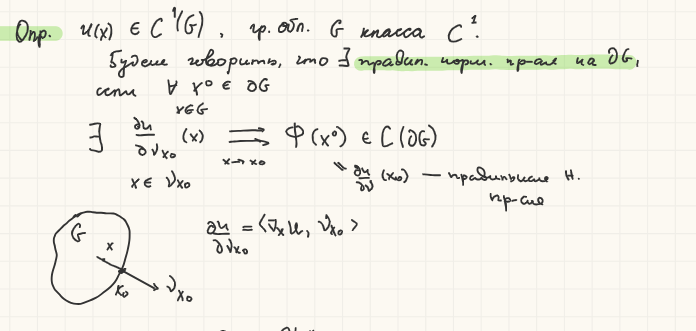 Опр. u(x) ∈ C¹(G), гр. обл. G класса C¹.
Будем говорить, что ∃ правил. норм. пр-ая на ∂G,
если ∀ x⁰ ∈ ∂G
x∈G
∃ ∂u/∂ν_{x₀} (x) ⇉ Φ(x⁰) ∈ C(∂G)
x→x₀
x ∈ ν_{x₀} " ∂u/∂ν (x₀) — правильная н.
пр-ая
G x x₀ ν_{x₀}
∂u/∂ν_{x₀} = ⟨∇ₓu, ν_{x₀}⟩